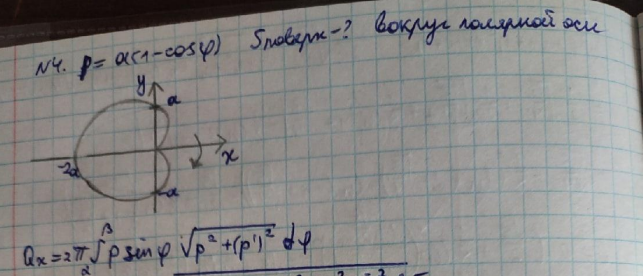 №4. ρ = a(1-cosφ) Sповерх-? вокруг полярной оси
y
a
x
-2a
-a
Qx = 2π∫αβ ρ sin φ √(ρ² + (ρ')²) dφ